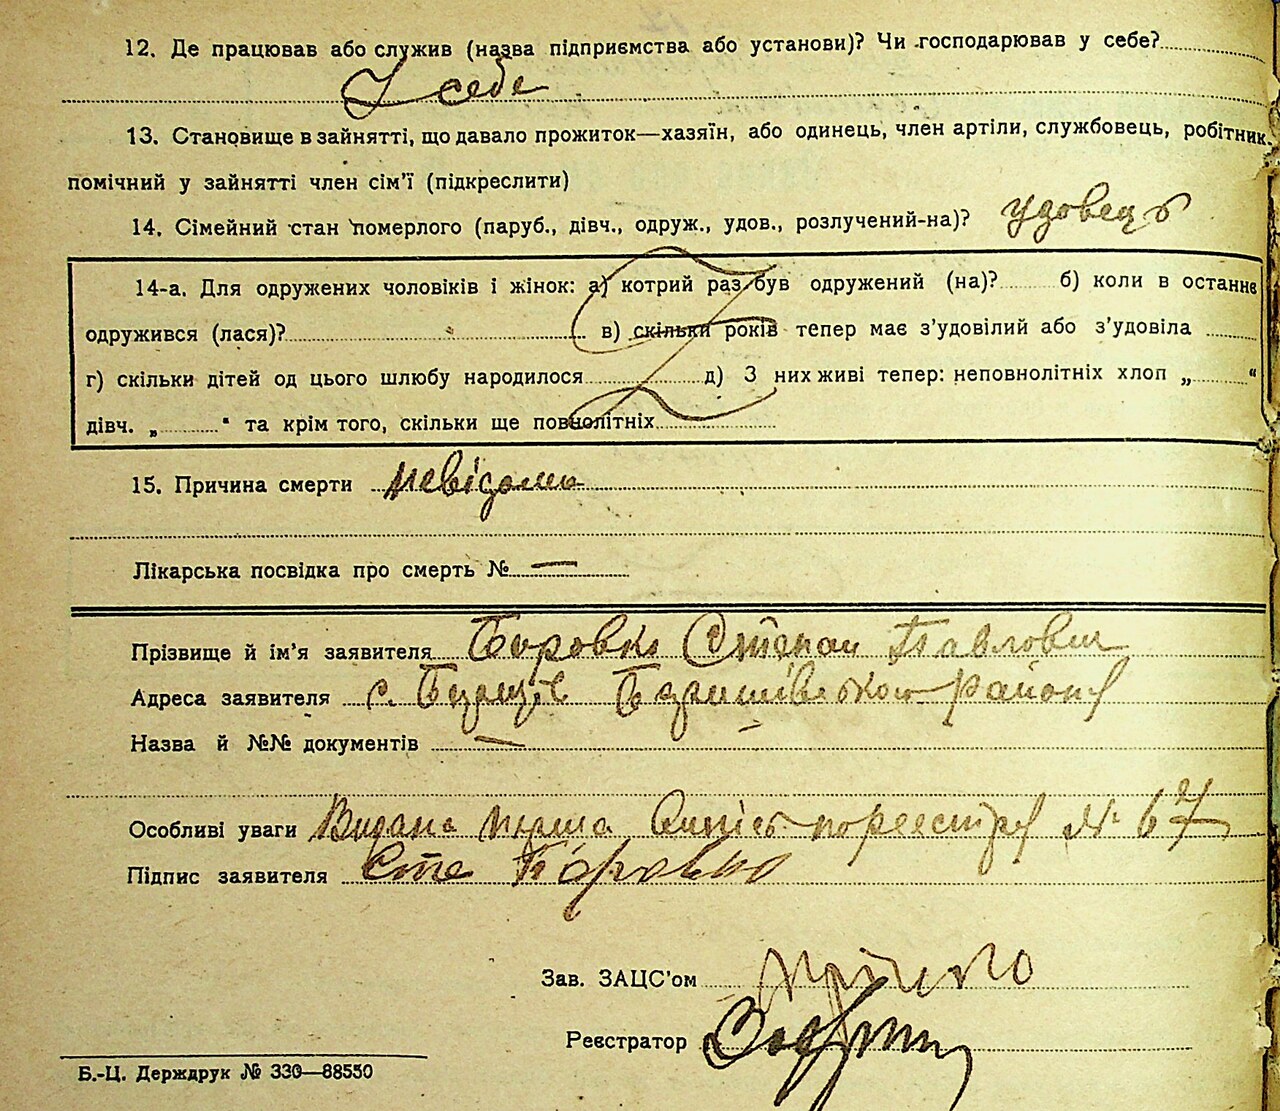 12. Де працював або служив (назва підприємства або установи)? Чи господарював у себе?
У себе
13. Становище в зайнятті, що давало прожиток—хазяїн, або одинець, член артіли, службовець, робітник.
помічний у зайнятті член сім'ї (підкреслити)
14. Сімейний стан померлого (паруб., дівч., одруж., удов., розлучений-на)? удовець
14-а. Для одружених чоловіків і жінок: а) котрий раз був одружений (на)? б) коли в останнє
одружився (лася)? в) скільки років тепер має з'удовілий або з'удовіла
г) скільки дітей од цього шлюбу народилося д) З них живі тепер: неповнолітніх хлоп „ “
дівч. „ “ та крім того, скільки ще повнолітніх
15. Причина смерти невідома
Лікарська посвідка про смерть № —
Прізвище й ім'я заявителя Степан Павлович
Адреса заявителя с. району
Назва й №№ документів —
Особливі уваги Видана перша по реєстру № 67
Підпис заявителя Сте
Зав. ЗАЦС'ом
Реєстратор
Б.-Ц. Держдрук № 330—88550